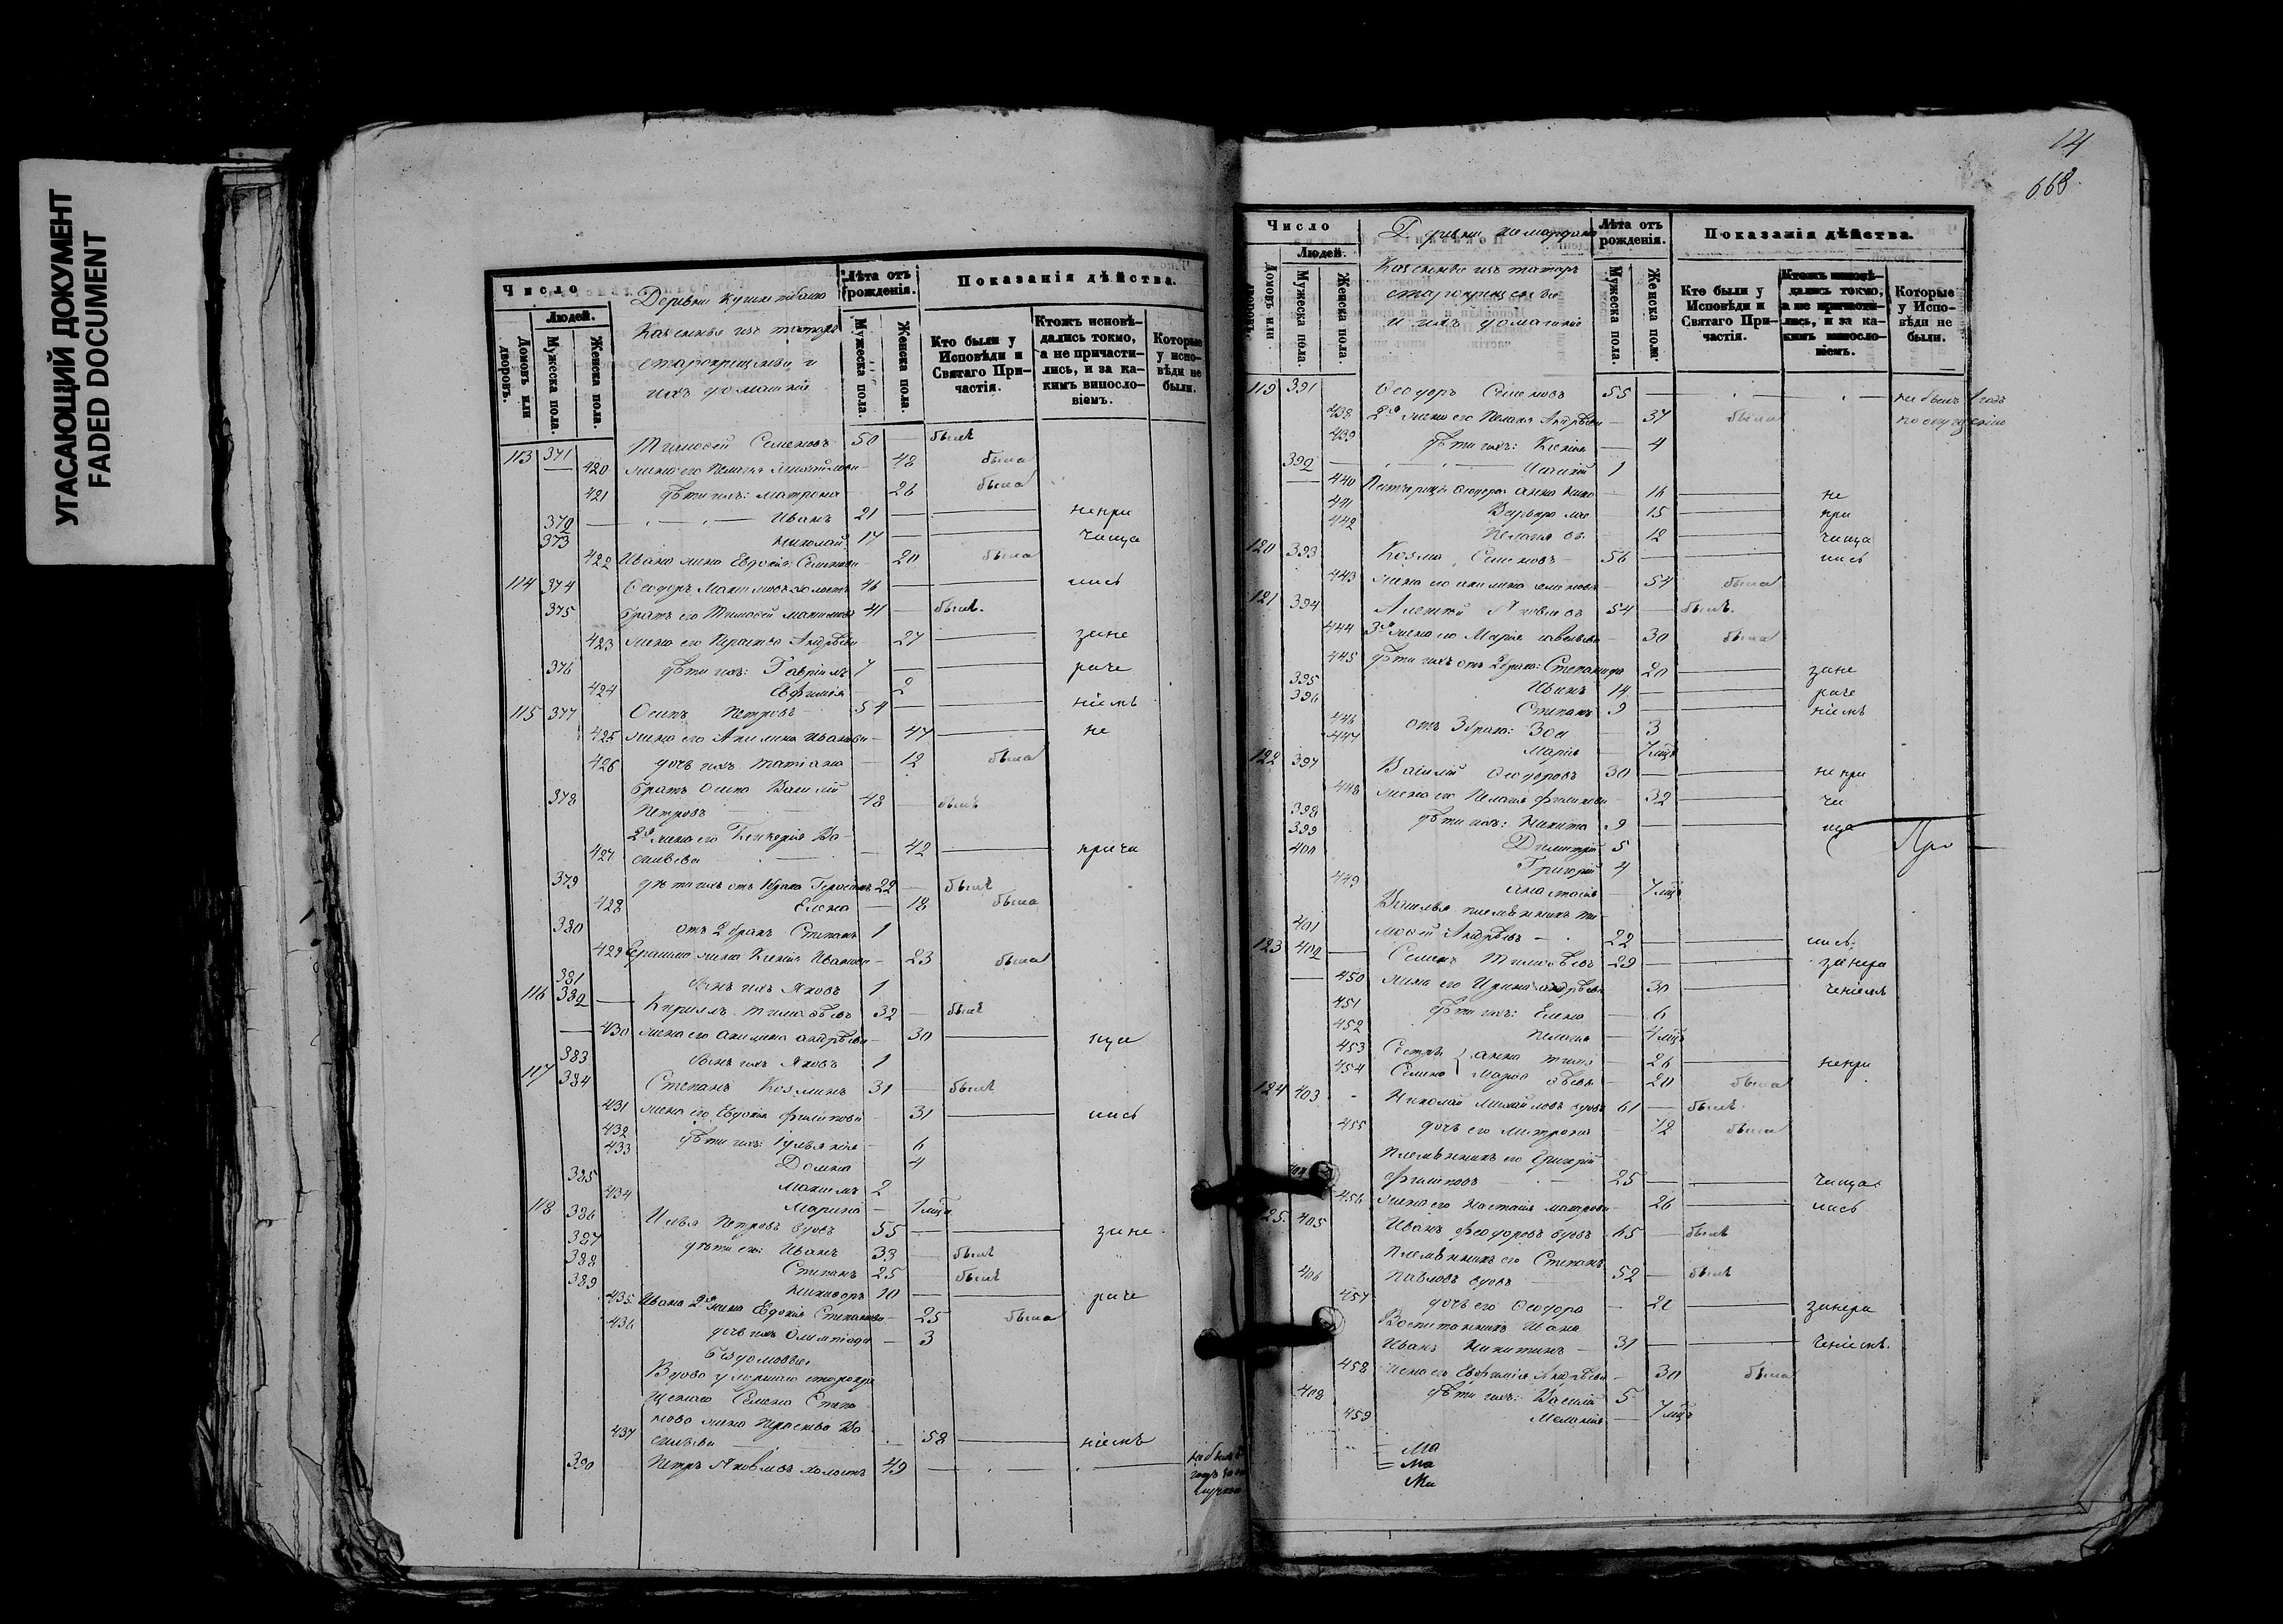 УГАСАЮЩИЙ ДОКУМЕНТ
FADED DOCUMENT
Число
Людей.
Домовъ или дворовъ.
Мужеска пола.
Женска пола.
Деревни
Казенные изъ татаръ
старокрещены и
ихъ домашніе
Лѣта отъ рожденія.
Мужеска пола.
Женска пола.
Показанія дѣйства.
Кто были у Исповѣди и Святаго Причастія.
Ктожъ исповѣдались токмо, а не причастились, и за какимъ винословіемъ.
Которые у исповѣди не были.
113 371 Тимоѳей Семеновъ 50 — былъ
420 жена его Пелагія Михайлова — 48 была
421 дѣти ихъ: Матрона — 26 была
372 Иванъ 21 — непри
373 Николай 17 — чаща
422 Ивана жена Евдокія Семенова — 20 была
114 374 Ѳеодоръ Максимовъ холостъ 46 — лись
375 братъ его Тимоѳей Максимовъ 41 — былъ.
423 жена его Параскева Андрѣева 27 зане
376 дѣти ихъ: Гавріилъ 7 — раче
424 Евфимія — 2
115 377 Осипъ Петровъ 54 — ніемъ
425 жена его Акилина Иванова — 47 не
426 дочь ихъ Татіана — 12 была
378 братъ Осипа Василій
Петровъ 48 — былъ
2я жена его Гликерія Ва-
427 сильева — 42 причи
379 дѣти ихъ отъ 1 брака Герасимъ 22 — былъ
428 Елена — 18 была
380 отъ 2 брака Степанъ 1
429 Герасима жена Ксенія Иванова — 23 была
381 сынъ ихъ Яковъ 1
116 382 Кириллъ Тимоѳѣевъ 32 — былъ
430 жена его Акилина Андрѣева — 30 ща
383 сынъ ихъ Яковъ 1
117 384 Степанъ Козминъ 31 — былъ
431 жена его Евдокія Филипова 31 лись
432 дѣти ихъ: Іуліанія — 6
433 Домна 4
385 Максимъ 2
434 Марина —
118 386 Илья Петровъ вдовъ 55 — зане
387 дѣти его: Иванъ 33 — былъ
388 Степанъ 25 — былъ
389 Никифоръ 10 — раче
435 Ивана 2я жена Евдокія Степанова — 25 была
436 дочь ихъ Олимпіада — 3
Бездомовые
Вдова умершаго старокре
щенаго Семена Степа
нова жена Параскева Ва
437 сильева 58 ніемъ
390 Петръ Яковлевъ холостъ 49 —
14
668.
Число
Людей.
Домовъ или дворовъ.
Мужеска пола.
Женска пола.
Деревни
Казенные изъ татаръ
старокрещены
и ихъ домашніе
Лѣта отъ рожденія.
Мужеска пола.
Женска пола.
Показанія дѣйства.
Кто были у Исповѣди и Святаго Причастія.
Ктожъ исповѣдались токмо, а не причастились, и за какимъ винословіемъ.
Которые у Исповѣди не были.
119 391 Ѳеодоръ Семеновъ 55 — не былъ 1 годъ
438 2я жена его Пелагія Андрѣева — 37 была по опущенію
439 дѣти ихъ: Ксенія — 4
392 1
440 Падчерицы Ѳеодора Анна 16 не
441 Варвара 15 при
442 Пелагія 12 чаща
120 393 Козма Семеновъ 56 — лись
443 жена его Акилина Семенова 54 была
121 394 Алексѣй Яковлевъ 54 — былъ.
444 3я жена его Марія 30 была
445 дѣти ихъ отъ 2 брака: Степанида 20 зане
395 Иванъ 14 — раче
396 Степанъ 9 — ніемъ
446 отъ 3 брака: Зоя — 3
447 Марія — 7 мцъ
122 397 Василій Ѳеодоровъ 30 — не при
448 жена его Пелагія Филипова — 32 ча
398 дѣти ихъ: Никита 9 — ща
399 Димитрій 5
400 Григорій 4
449 Анастасія — 7 мцъ
Василья племянникъ Ти-
401 моѳей Андрѣевъ 22 — лись
123 402 Семенъ Тимоѳѣевъ 29 — занера
450 жена его Ирина Андрѣева 30 ченіемъ
451 дѣти ихъ: Елена — 6
452 Пелагія — 4 мцъ
453 Сестры Анна Тимо 26 непри
454 Семена Марѳа ѳѣевы — 20 была
124 403 Николай Михайловъ вдовъ 61 — былъ.
455 дочь его Матрона 12 была
Племянникъ его Григорій
404 Филиповъ 25 — чаща
456 жена его Настасія — 26 лись
125. 405 Иванъ Феодоровъ вдовъ 65 — былъ
Племянникъ его Степанъ
406 Павловъ вдовъ 52 — былъ
457 дочь его Ѳеодора занера
Воспитанникъ Ивана
Иванъ Никитинъ 31 — ченіемъ.
458 жена его Евфимія Андрѣева — 30 была
408 дѣти ихъ: Василій 5
459 Меланія — 7 мцъ
Ма
Ма